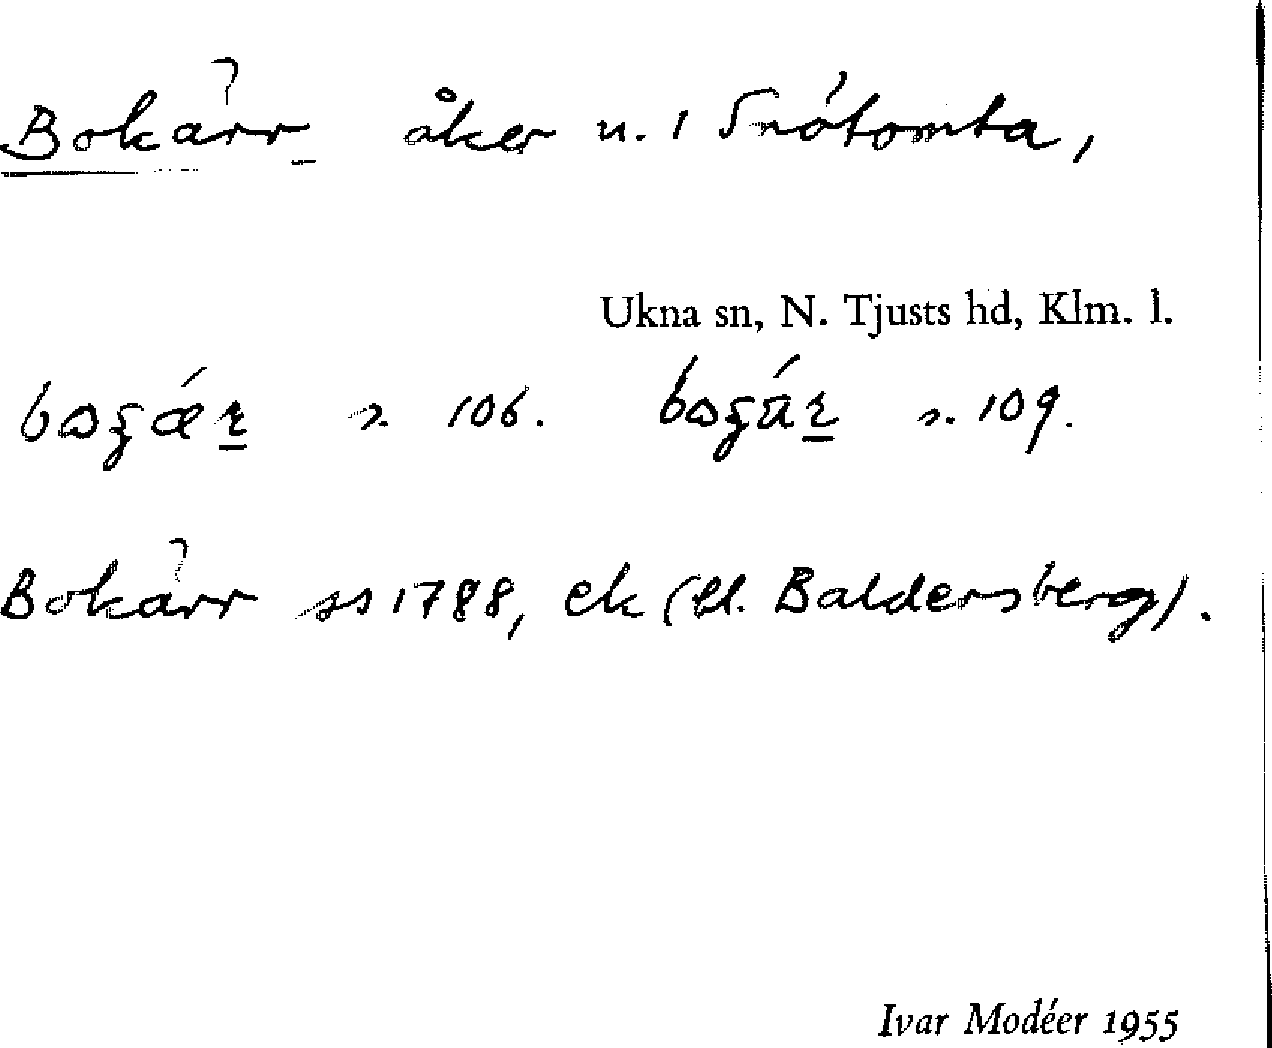 Bokärr åker u. 1 Snótomta,
Ukna sn, N. Tjusts hd, Klm. l.
s. 106. s. 109.
Bokärr ss 1788, ek (bl. Baldersberg).
Ivar Modéer 1955